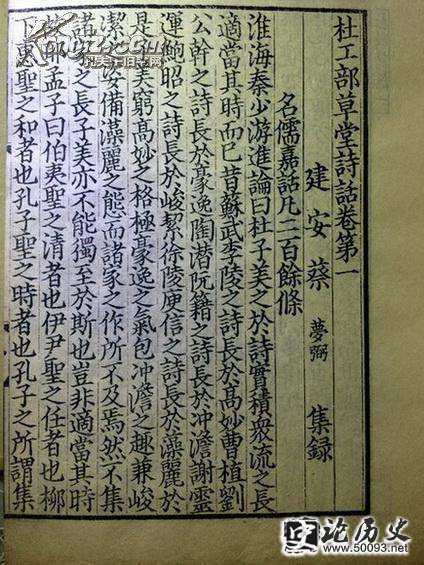 杜工部草堂詩話卷第一
建安蔡 夢弼 集録
名儒嘉話凡二百餘條
淮海秦少游進論曰杜子美之於詩實積衆流之長
適當其時而已昔蘇武李陵之詩長於高妙曹植劉
公幹之詩長於豪逸陶潛阮籍之詩長於冲澹謝靈
運鮑昭之詩長於峻潔徐陵庾信之詩長於藻麗於
是子美窮高妙之格極豪逸之氣包冲澹之趣兼峻
潔之姿備藻麗之態而諸家之作所不及焉然不集
諸家之長子美亦不能獨至於斯也豈非適當其時
孟子曰伯夷聖之清者也伊尹聖之任者也柳
下惠聖之和者也孔子聖之時者也孔子之所謂集
论历史
www.50093.net